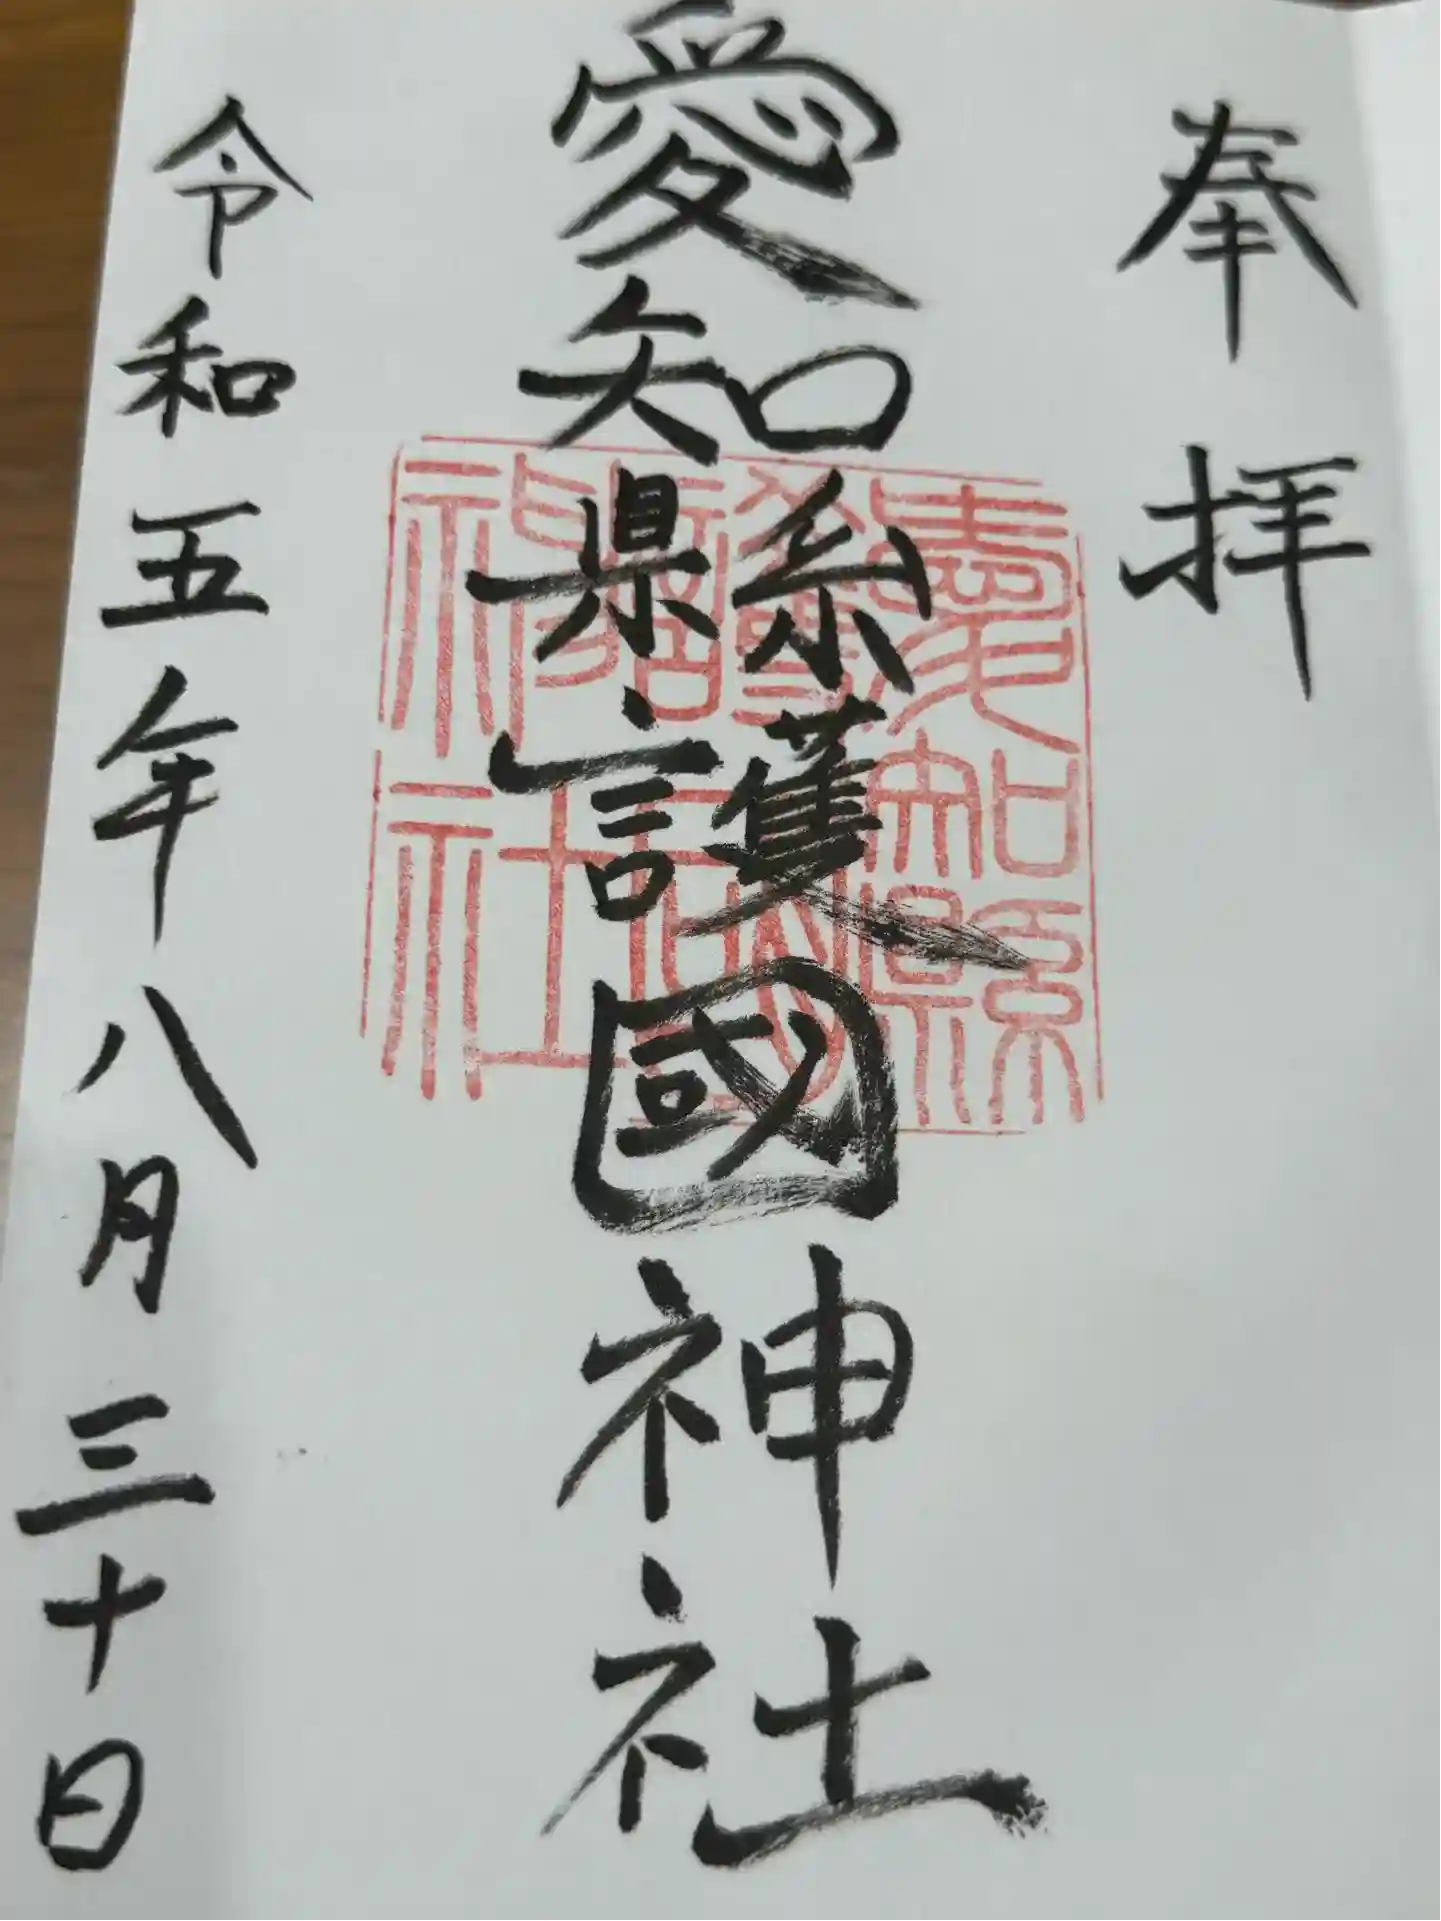 奉拝
愛知縣護國神社
令和五年八月三十日
愛知縣
護國
神社